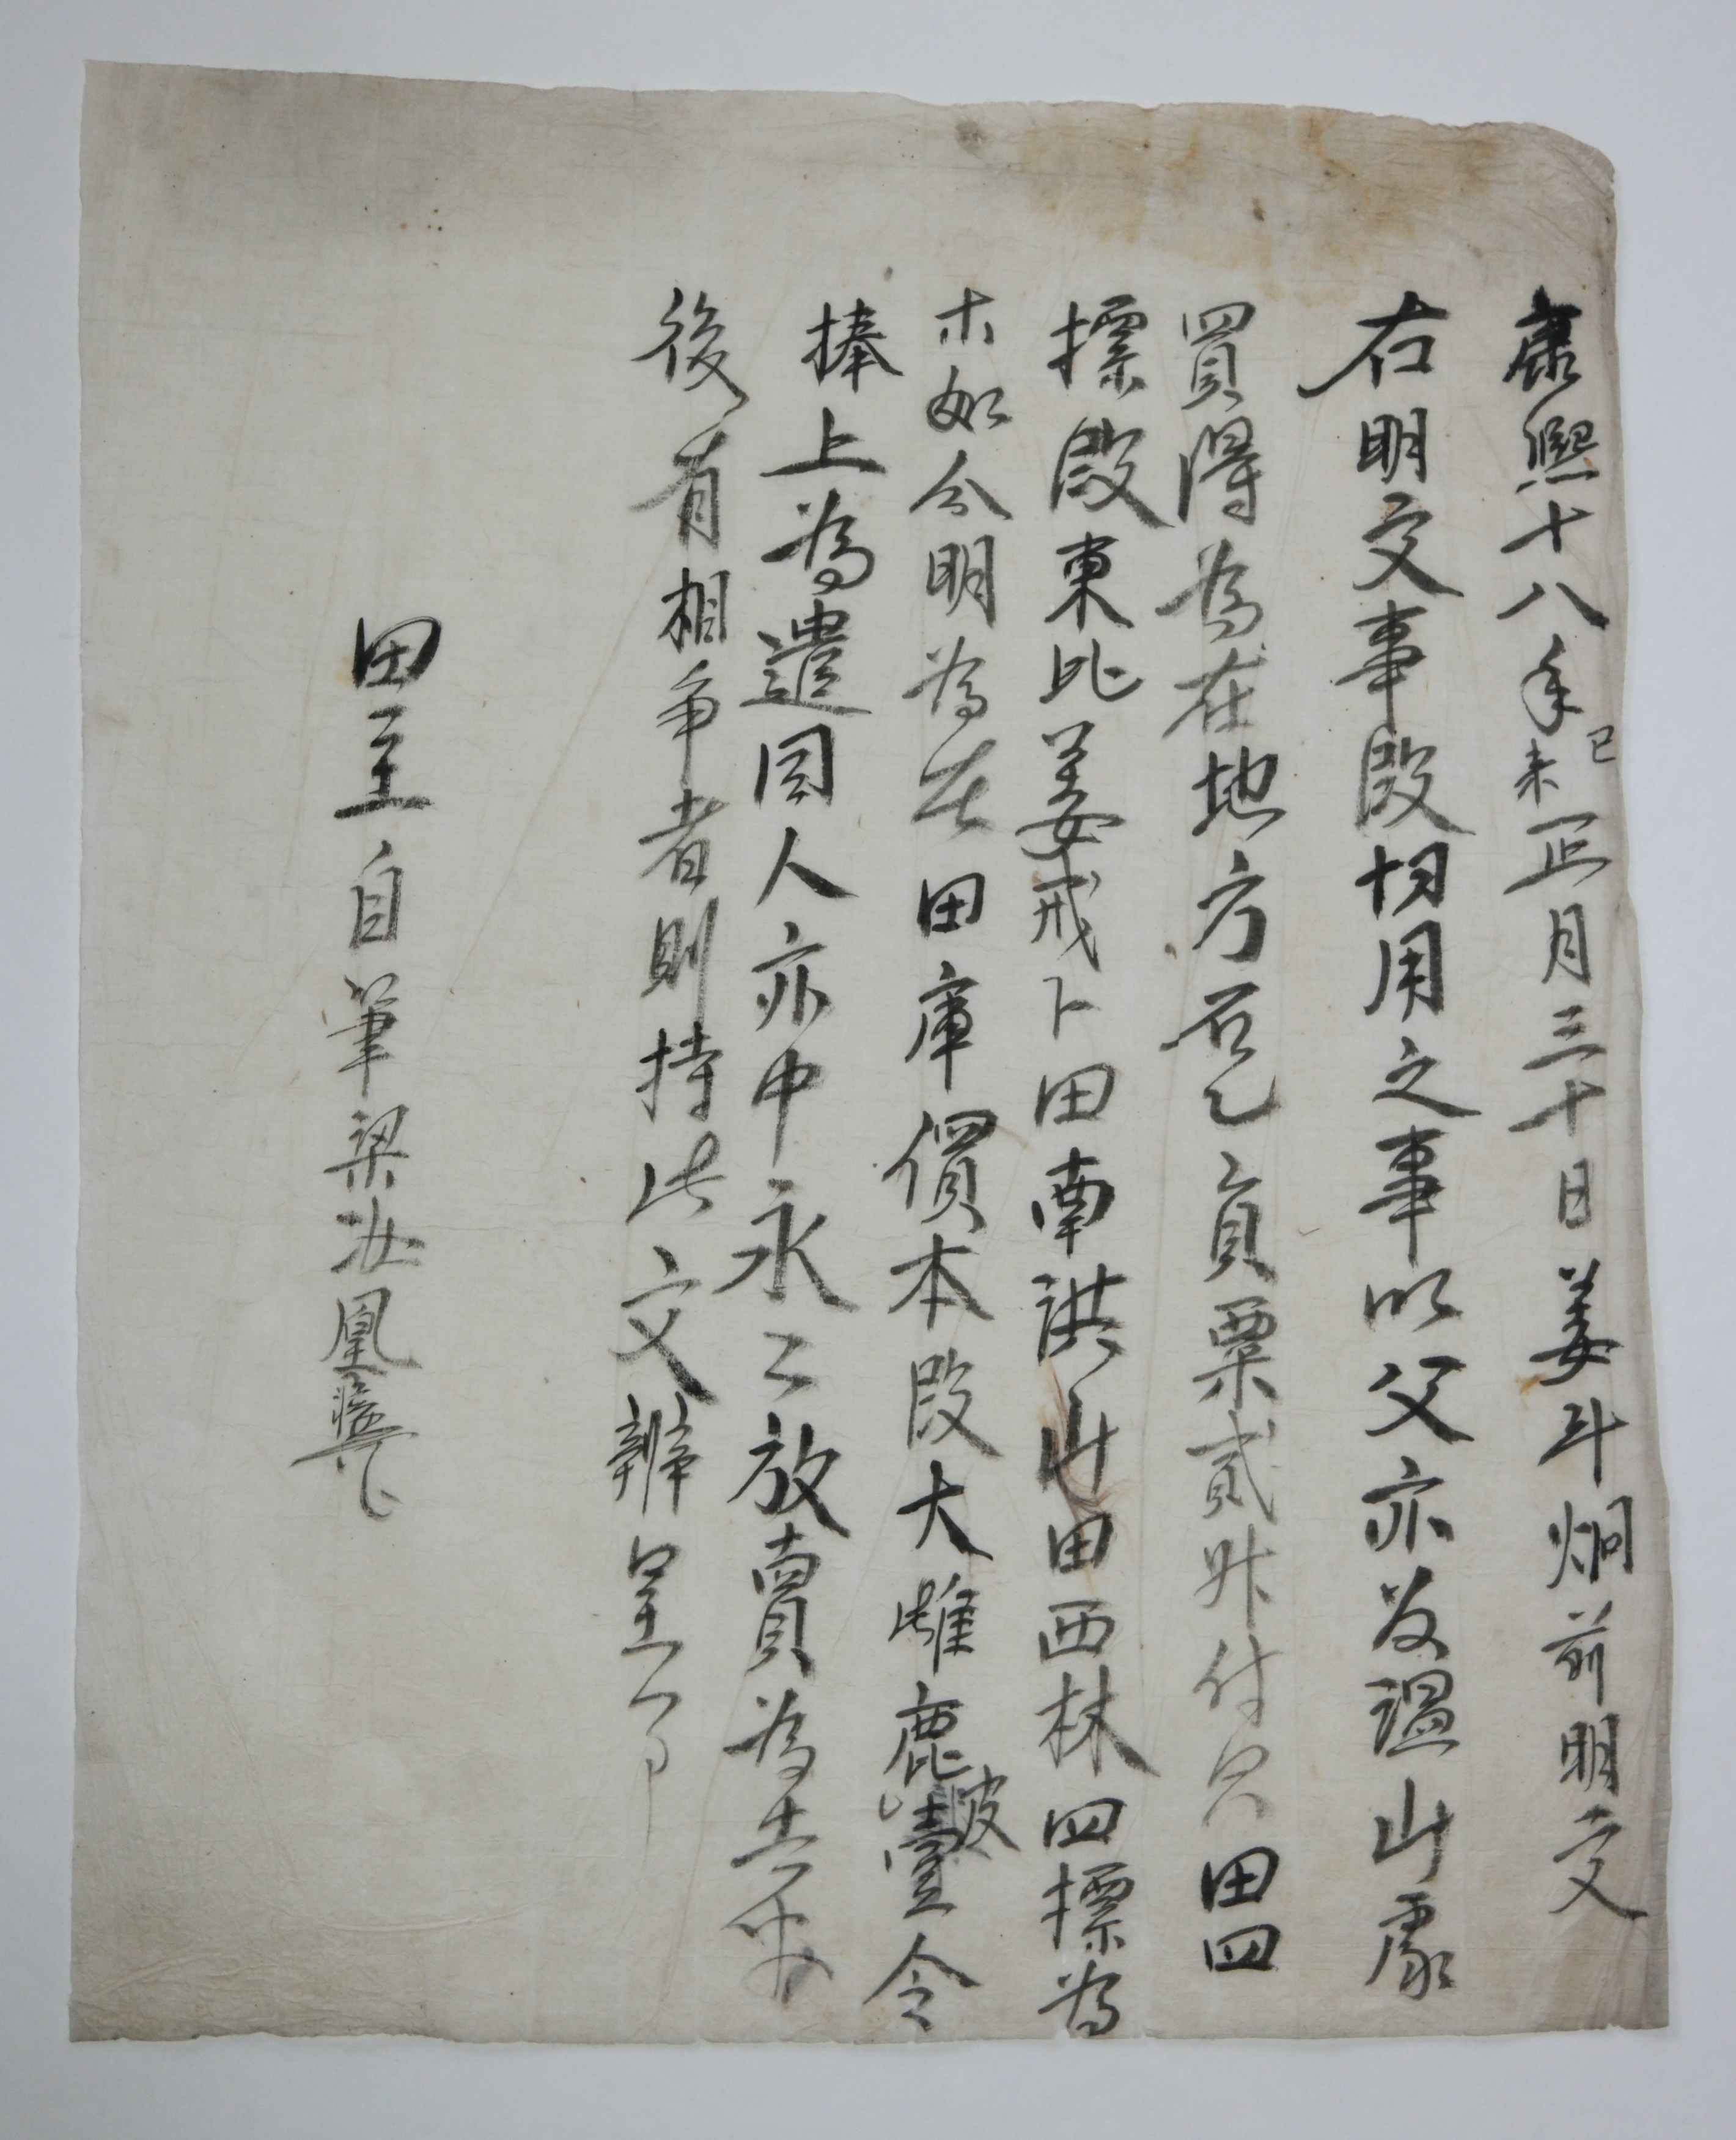 康熙十八年己未正月三十日姜斗炯前明文
右明文事段切用之事以父亦溫山處
買得為在地方石乙員粟貳升付只田四
標段東北姜戒卜田南洪山田西林四標為
木如分明為在田庫價本段大雌鹿皮壹令
捧上為遣同人亦中永〻放賣為去乎
後有相爭者則持此文辨呈
田主自筆梁汝凰